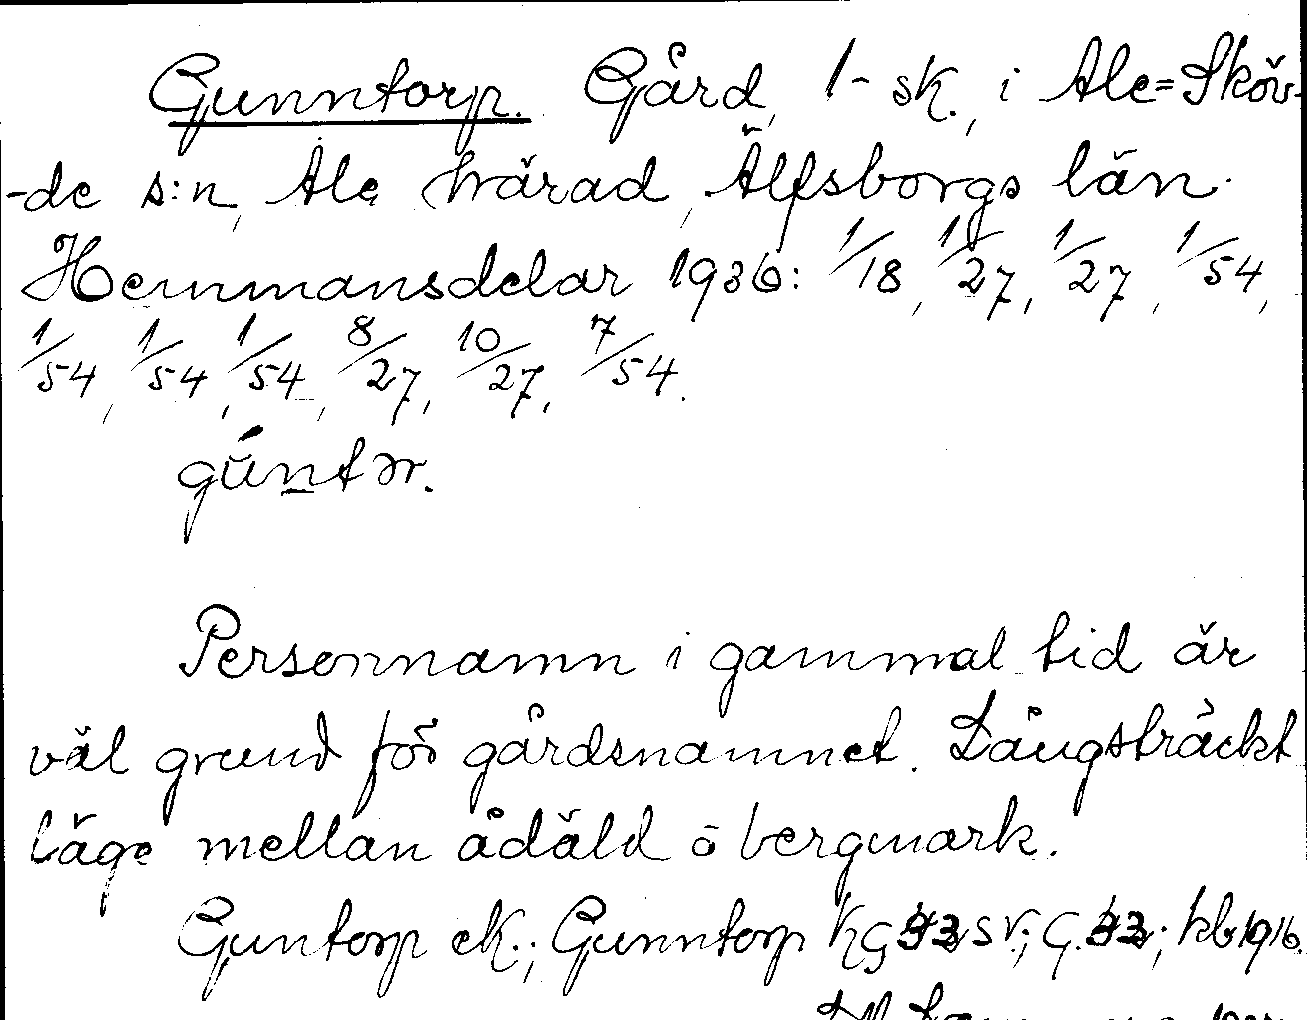 Gunntorp. Gård, 1- sk., i Ale=Sköv-
-de s:n, Ale härad, Älfsborgs län.
Hemmansdelar 1936: 1/18, 1/27, 1/27, 1/54,
1/54, 1/54, 1/54, 8/27, 10/27, 7/54.
gúntər.
Personnamn i gammal tid är
väl grund för gårdsnamnet. Långsträckt
läge mellan ådäld o bergmark.
Guntorp ek.; Gunntorp kg sv.; kb 1916.